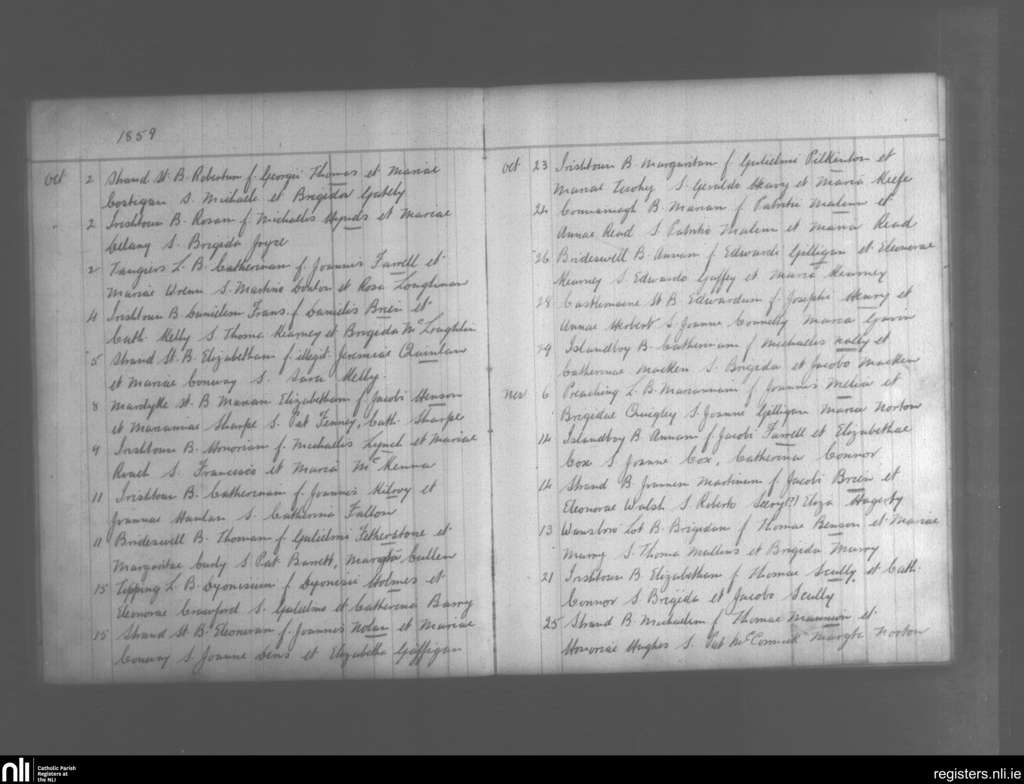 1859
Oct 2 Strand St. B. Robertum f. Georgii Thomas et Mariae
Costigan S. Michaele et Brigida Gately
2 Irishtown B. Rosam f. Michaelis Hynds et Mariae
Celany S. Brigida Joyce
2 Tangiers L. B. Catherinam f. Joannis Farrell et
Mariae Wrenn S. Martino Conlon et Rosa Loughman
4 Irishtown B. Danielem Frans. f. Danielis Brien et
Cath. Kelly S. Thoma Kearney et Brigida McLoughlin
5 Strand St. B. Elizabetham f. illegit. Jeremiae Quinlan
et Mariae Conway S. Sara Kelly.
8 Mardyke St. B. Mariam Elizabetham f. Jacobi Henson
et Mariannae Sharpe S. Pat Finney, Cath. Sharpe
9 Irishtown B. Honoriam f. Michaelis Lynch et Mariae
Roach S. Francesco et Maria McKenna
11 Irishtown B. Catherinam f. Joannis Kilroy et
Joannae Hanlan S. Catherina Fallon
11 Brideswell B. Thomam f. Gulielmi Fetherstone et
Margaritae Cudy S. Pat Barrett, Margta Cullen
15 Tipping L. B. Dyonesium f. Dyonesii Holmes et
Eleonorae Crawford S. Gulielmo et Catherina Barry
15 Strand St. B. Eleonoram f. Joannis Nolan et Mariae
Conway S. Joanne Dens et Elizabetha Gaffigan
Oct 23 Irishtown B. Margaritam f. Gulielmi Pilkinton et
Mariae Tuohy S. Geraldo Heavy et Maria Keefe
24 Cornamagh B. Mariam f. Patritii Malinn et
Annae Read S. Patritio Malinn et Maria Read
26 Brideswell B. Annam f. Edwardi Gilligan et Eleonorae
Kearney S. Edwardo Gaffey et Maria Kearney
28 Castlemaine St B. Edwardum f. Josephi Henry et
Annae Herbert S. Joanne Connelly Maria Gavin
29 Islandboy B. Catherinam f. Michaelis Kelly et
Catherinae Macken S. Brigida et Jacobo Macken
Nov 6 Preaching L. B. Mariannam f. Joannis Melia et
Brigidae Quigley S. Joanne Gilligan Maria Norton
14 Islandboy B. Annam f. Jacobi Farrell et Elizabethae
Cox S. Joanne Cox, Catherina Connor
14 Strand B. Joannem Martinum f. Jacobi Breen et
Eleonorae Walsh S. Roberto (?) Eliza Hagerty
13 Wansboro Lot B. Brigidam f. Thomae Benson et Mariae
Murry S. Thoma Mullens et Brigida Murry
21 Irishtown B. Elizabetham f. Thomae Scully et Cath.
Connor S. Brigida et Jacobo Scully
25 Strand B. Michaelem f. Thomae Mannion et
Honoriae Hughes S. Pat McCormick Margte Norton
nli
Catholic Parish
Registers at
the NLI
registers.nli.ie